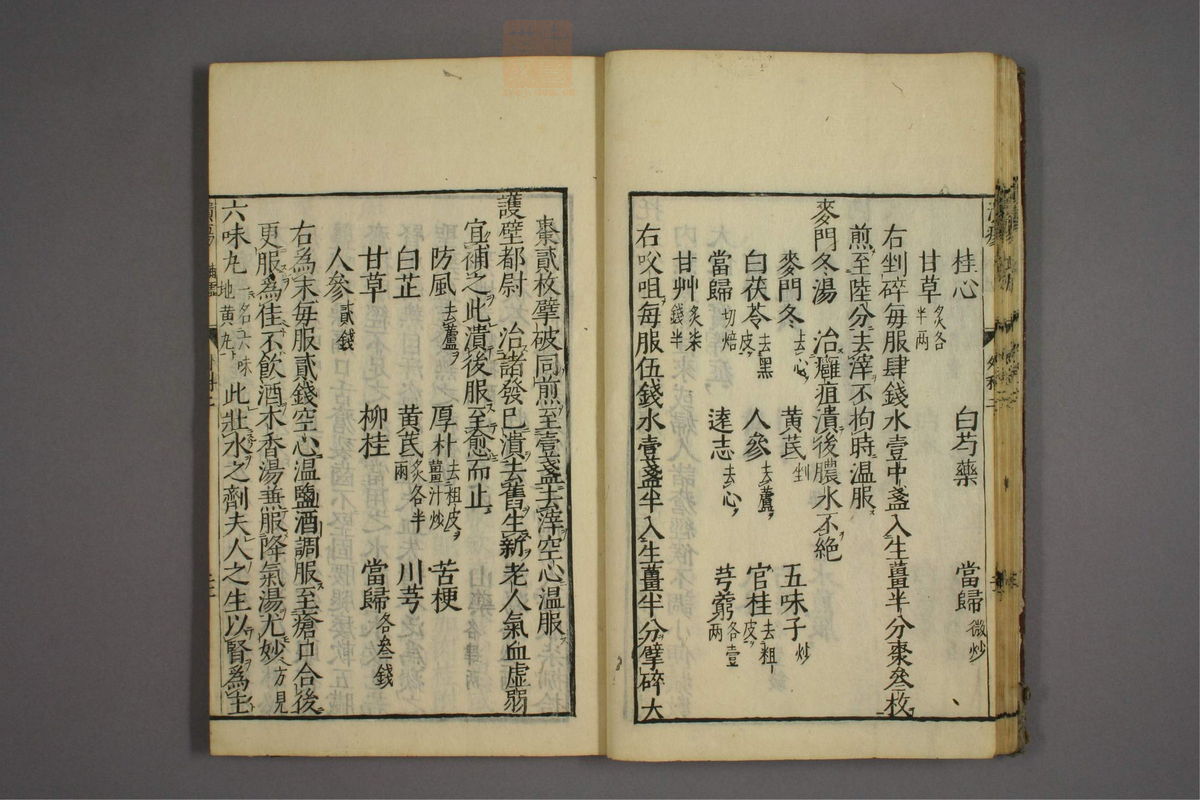 桂心 白芍藥 當歸微炒
甘草炙各半兩
右剉碎毎服肆錢水壹中盞入生薑半分棗叄枚
煎至陸分去滓不拘時温服
麥門冬湯 治癰疽潰後膿水不絶
麥門冬去心 黄芪剉 五味子炒
白茯苓去黒皮 人參去蘆 官桂去粗皮
當歸切焙 逺志去心 芎藭各壹兩
甘艸炙柒錢半
右㕮咀毎服伍錢水壹盞半入生薑半分擘碎大
棗貳枚擘破同煎至壹盞去滓空心温服
護壁都尉 治諸發已潰去舊生新老人氣血虚弱
宜補之此潰後服至愈而止
防風去蘆 厚朴去粗皮薑汁炒 苦梗
白芷 黄芪炙各半兩 川芎
甘草 柳桂 當歸各叄錢
人參貳錢
右為末毎服貳錢空心温鹽酒調服至瘡口合後
更服為佳不飲酒木香湯無服降氣湯尤妙方見
六味丸一名六味地黄丸 此壯水之劑夫人之生以腎為主